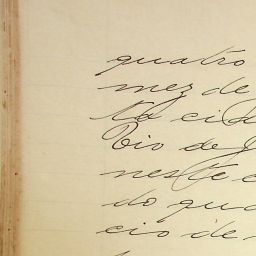 quatro
mez de
ta cid
Rio de J
neste e
do qua
cio de